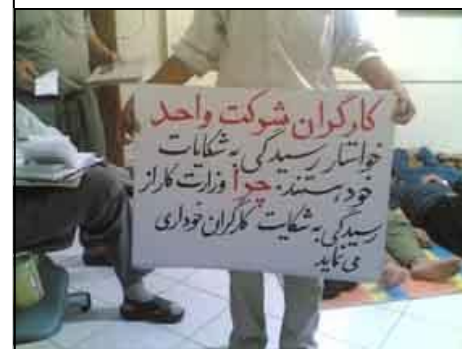 کارگران شرکت واحد
خواستار رسیدگی به شکایات
خود هستند. چرا وزارت کار از
رسیدگی به شکایت کارگران خودداری
می نماید